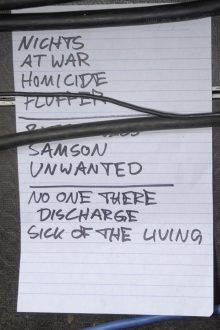 NIGHTS
AT WAR
HOMICIDE
FLUFFER
SAMSON
UNWANTED
NO ONE THERE
DISCHARGE
SICK OF THE LIVING